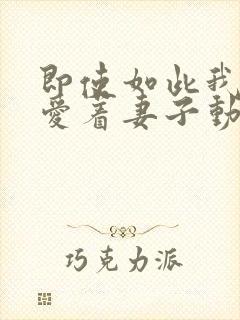 即使如此我
愛着妻子動
巧克力派